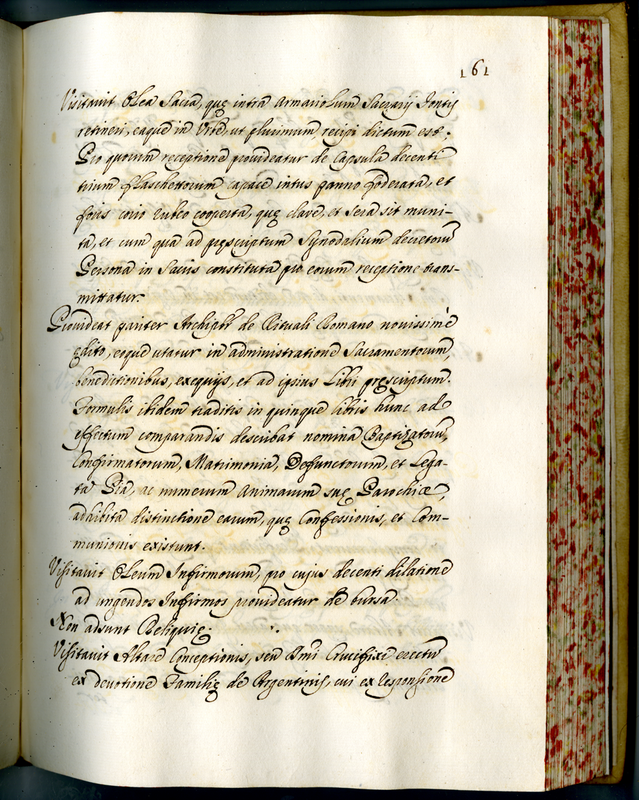 161
Visitavit Olea Sacra, quę intra Armariolum Sacrarij Fontis
retineri, eaque in Urbe, ut plurimum recipi dictum est.
Pro quorum receptione provideatur de Capsula decenti
trium Flaschettorum capace intus panno foderata, et
foris corio rubeo cooperta, quę clave, et Sera sit muni-
ta, et cum qua ad pręscriptum Synodalium decretorũ
Persona in Sacris constituta pro eorum receptione trans-
mittatur.
Provideat pariter Archipr̃ de Rituali Romano novissime
Edito, eoque utatur in administratione Sacramentorum,
benedictionibus, exequijs, et ad ipsius Libri pręscriptum.
Formulis ibidem traditis in quinque libris hunc ad
effectum comparandis describat nomina Baptizatorũ,
Confirmatorum, Matrimonia, Defunctorum, et Lega-
ta Pia, ac numerum Animarum suę Parochiæ,
adhibita distinctione earum, quę Confessionis, et Com-
munionis existunt.
Visitavit Oleum Infirmorum, pro cujus decenti dilatione
ad ungendos Infirmos provideatur de bursa
Non adsunt Reliquię.
Visitavit Altare Conceptionis, seu Sm̃i Crucifixi erectũ
ex devotione Familię de Argentinis, cui ex responsione